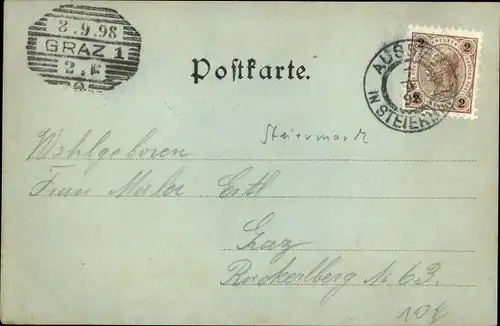 8.9.98
GRAZ 1
2.F
Postkarte.
AUSS
IN STEIERM
2 2
2 2
Steiermark
Wohlgeboren
Frau Maler Ertl
Graz
Ruckerlberg No 63.